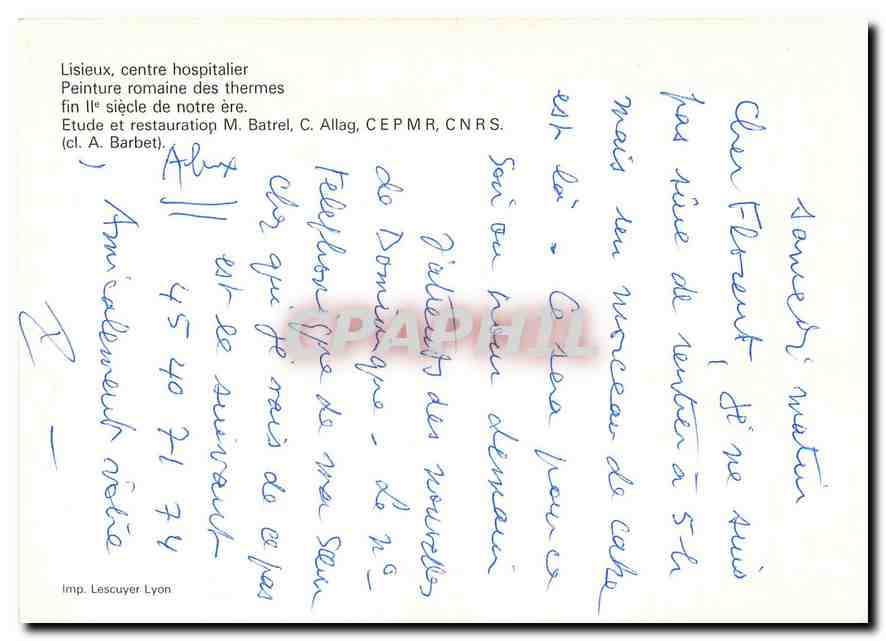 Lisieux, centre hospitalier
Peinture romaine des thermes
fin IIe siècle de notre ère.
Etude et restauration M. Batrel, C. Allag, CEPMR, CNRS.
(cl. A. Barbet).
samedi matin
Cher Florent je ne suis
pas sûre de rentrer à 5 h
mais un morceau de cake
est là. Ce sera pour ce
soir ou pour demain
J'attends des nouvelles
de Dominique. Le n°
téléphonique de ma sœur
chez qui je vais de ce pas
est le suivant
45 40 71 74
Amicalement vôtre
CPAPHIL
Imp. Lescuyer Lyon